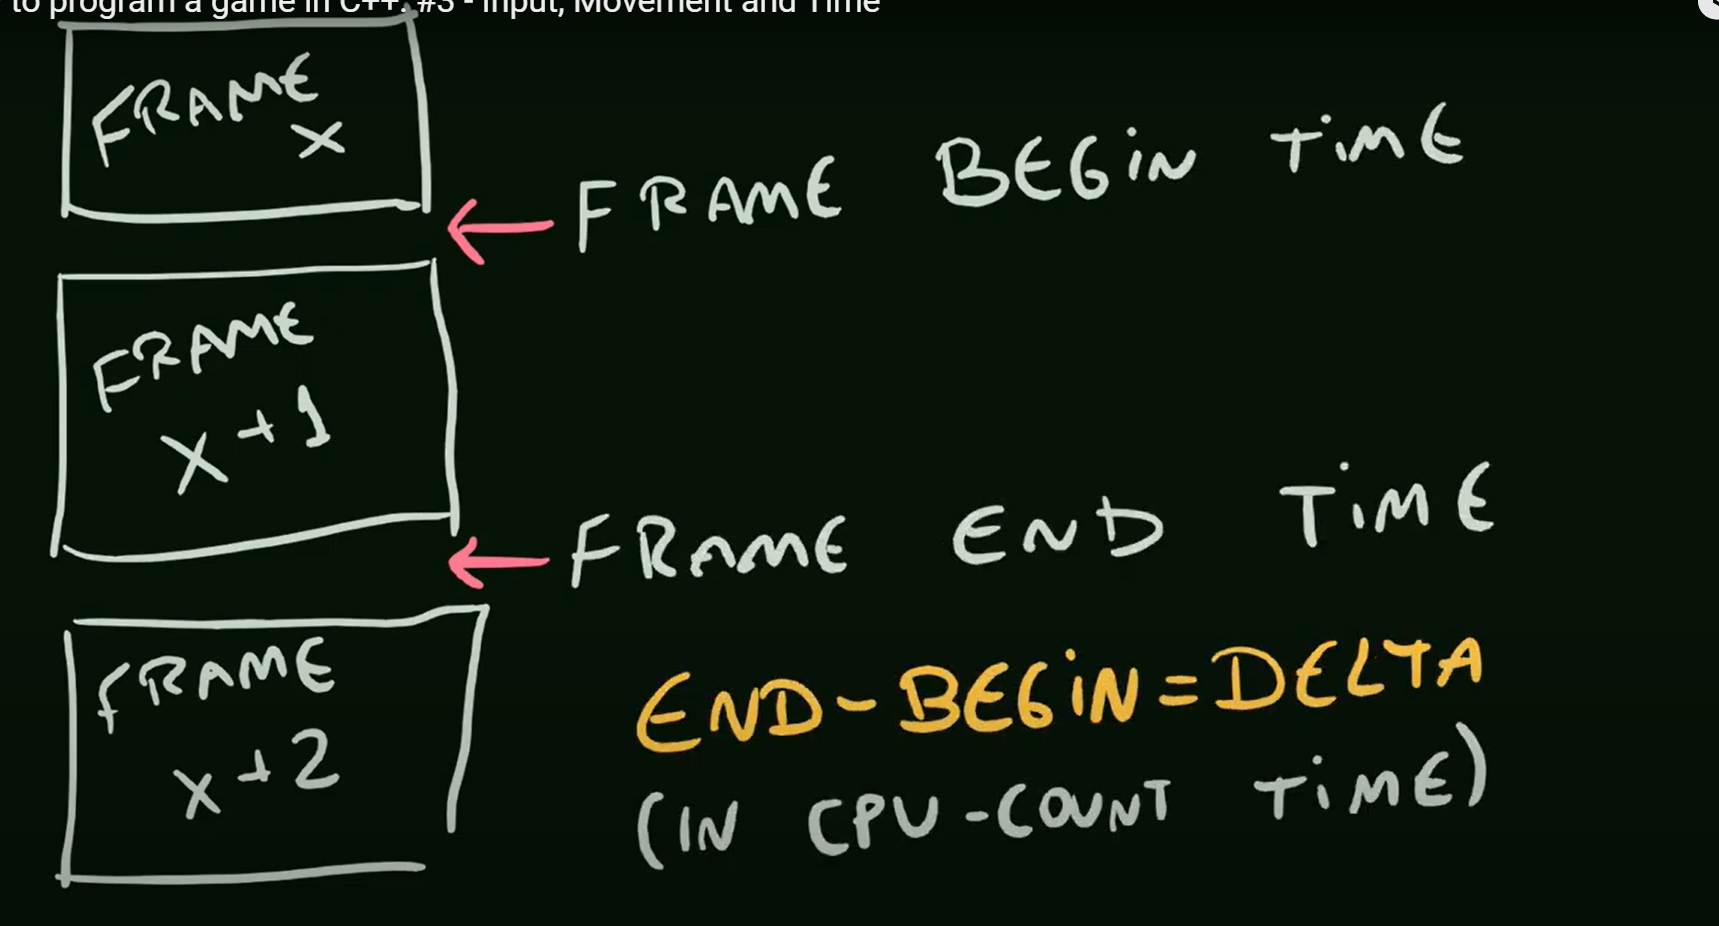 to program a game in C++. #3 - Input, Movement and Time
FRAME
X
FRAME BEGIN TIME
FRAME
X+1
FRAME END TIME
FRAME
X+2
END-BEGIN=DELTA
(IN CPU-COUNT TIME)